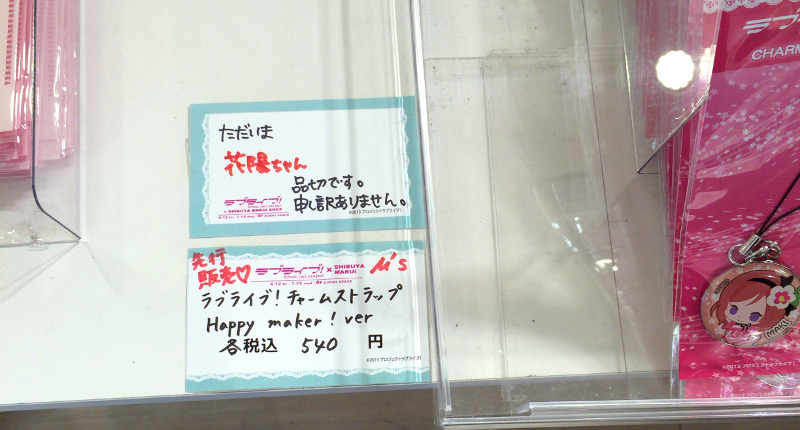 ただいま
花陽ちゃん
品切です。
申し訳ありません。
ラブライブ!
School idol project
× SHIBUYA MARUI SHOP
©2013 プロジェクトラブライブ!
先行
販売♡
ラブライブ!
School idol project
× SHIBUYA
MARUI
μ's
ラブライブ!チャームストラップ
Happy maker! ver
各税込 540 円
©2013 プロジェクトラブライブ!
ラブライ
CHARM
MAKI
©2013 プロジェクトラブライブ!